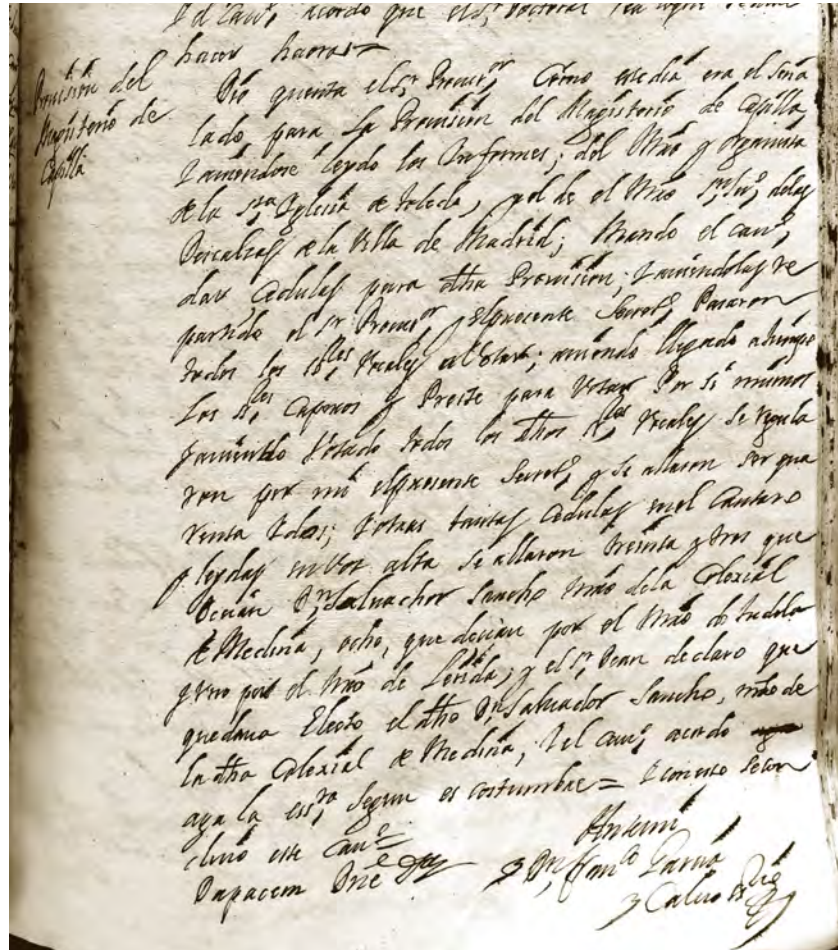 Y el Cav.º acordo que el S.r Doctoral
hacer haora =
Provision del
Magisterio de
Capilla
Dió quenta el s.r Provis.or, como este dia era el seña
lado para La Provision del Magisterio de Capilla,
Y aviendose leydo los Informes, del Mrō y organista
de la s.ta Yglesia de Toledo, y el de el Mrō de las
Descalzas de la Villa de Madrid; Mando el cav.º,
dar Cedulas para dha Provision; Y aviendolas re
partido el s.r y el presente Secret.º Pasaron
todos los s.res Vocales al Altar; aviendo llegado a tiempo
Los s.res y Preste para Votar Por si mismos
y aviendo Votado todos los dhos s.res Vocales se regula
ron por mi el presente Secret.º, y se allaron ser qua
renta Y dos; Y otras tantas Cedulas en el Cantaro
y leydas en Voz alta se allaron treinta y tres que
Decian D.n Salvachor Sancho Mrō de la Colexial
de Medina, ocho, que decian por el Mrō de Tudela
y uno por el Mrō de Lerida; y el s.r Dean declaro que
quedava Electo el dho D.n Salvador Sancho, mrō de
la dha Colexial de Medina, Y el Cav.º, acordo
aga la ess.ra segun es costumbre = Y con esto se con
cluió este Cav.º =
Dapacem Dñe
Antemi
D.n Fran.co Garcia
y Calvo